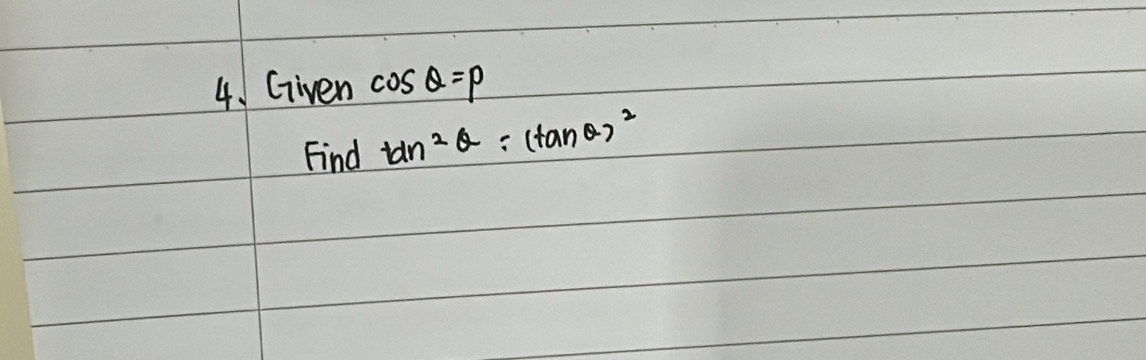 4. Given cos θ = p
Find tan² θ = (tan θ)²